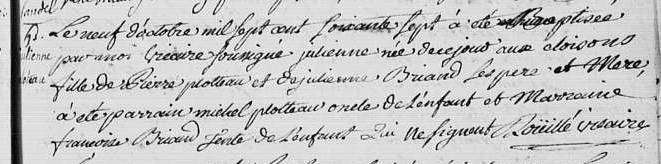 Le neuf d'octobre mil sept cent soixante sept à été Baptisée
julienne par moi vicaire sousigné julienne née de ce jour aux cloisons
fille de Pierre plotteau et de julienne Briand ses pere et Mere,
à été parrain michel plotteau oncle de l'enfant et Marraine
francoise Briand tente de l'enfant qui ne signent Roüillé vicaire